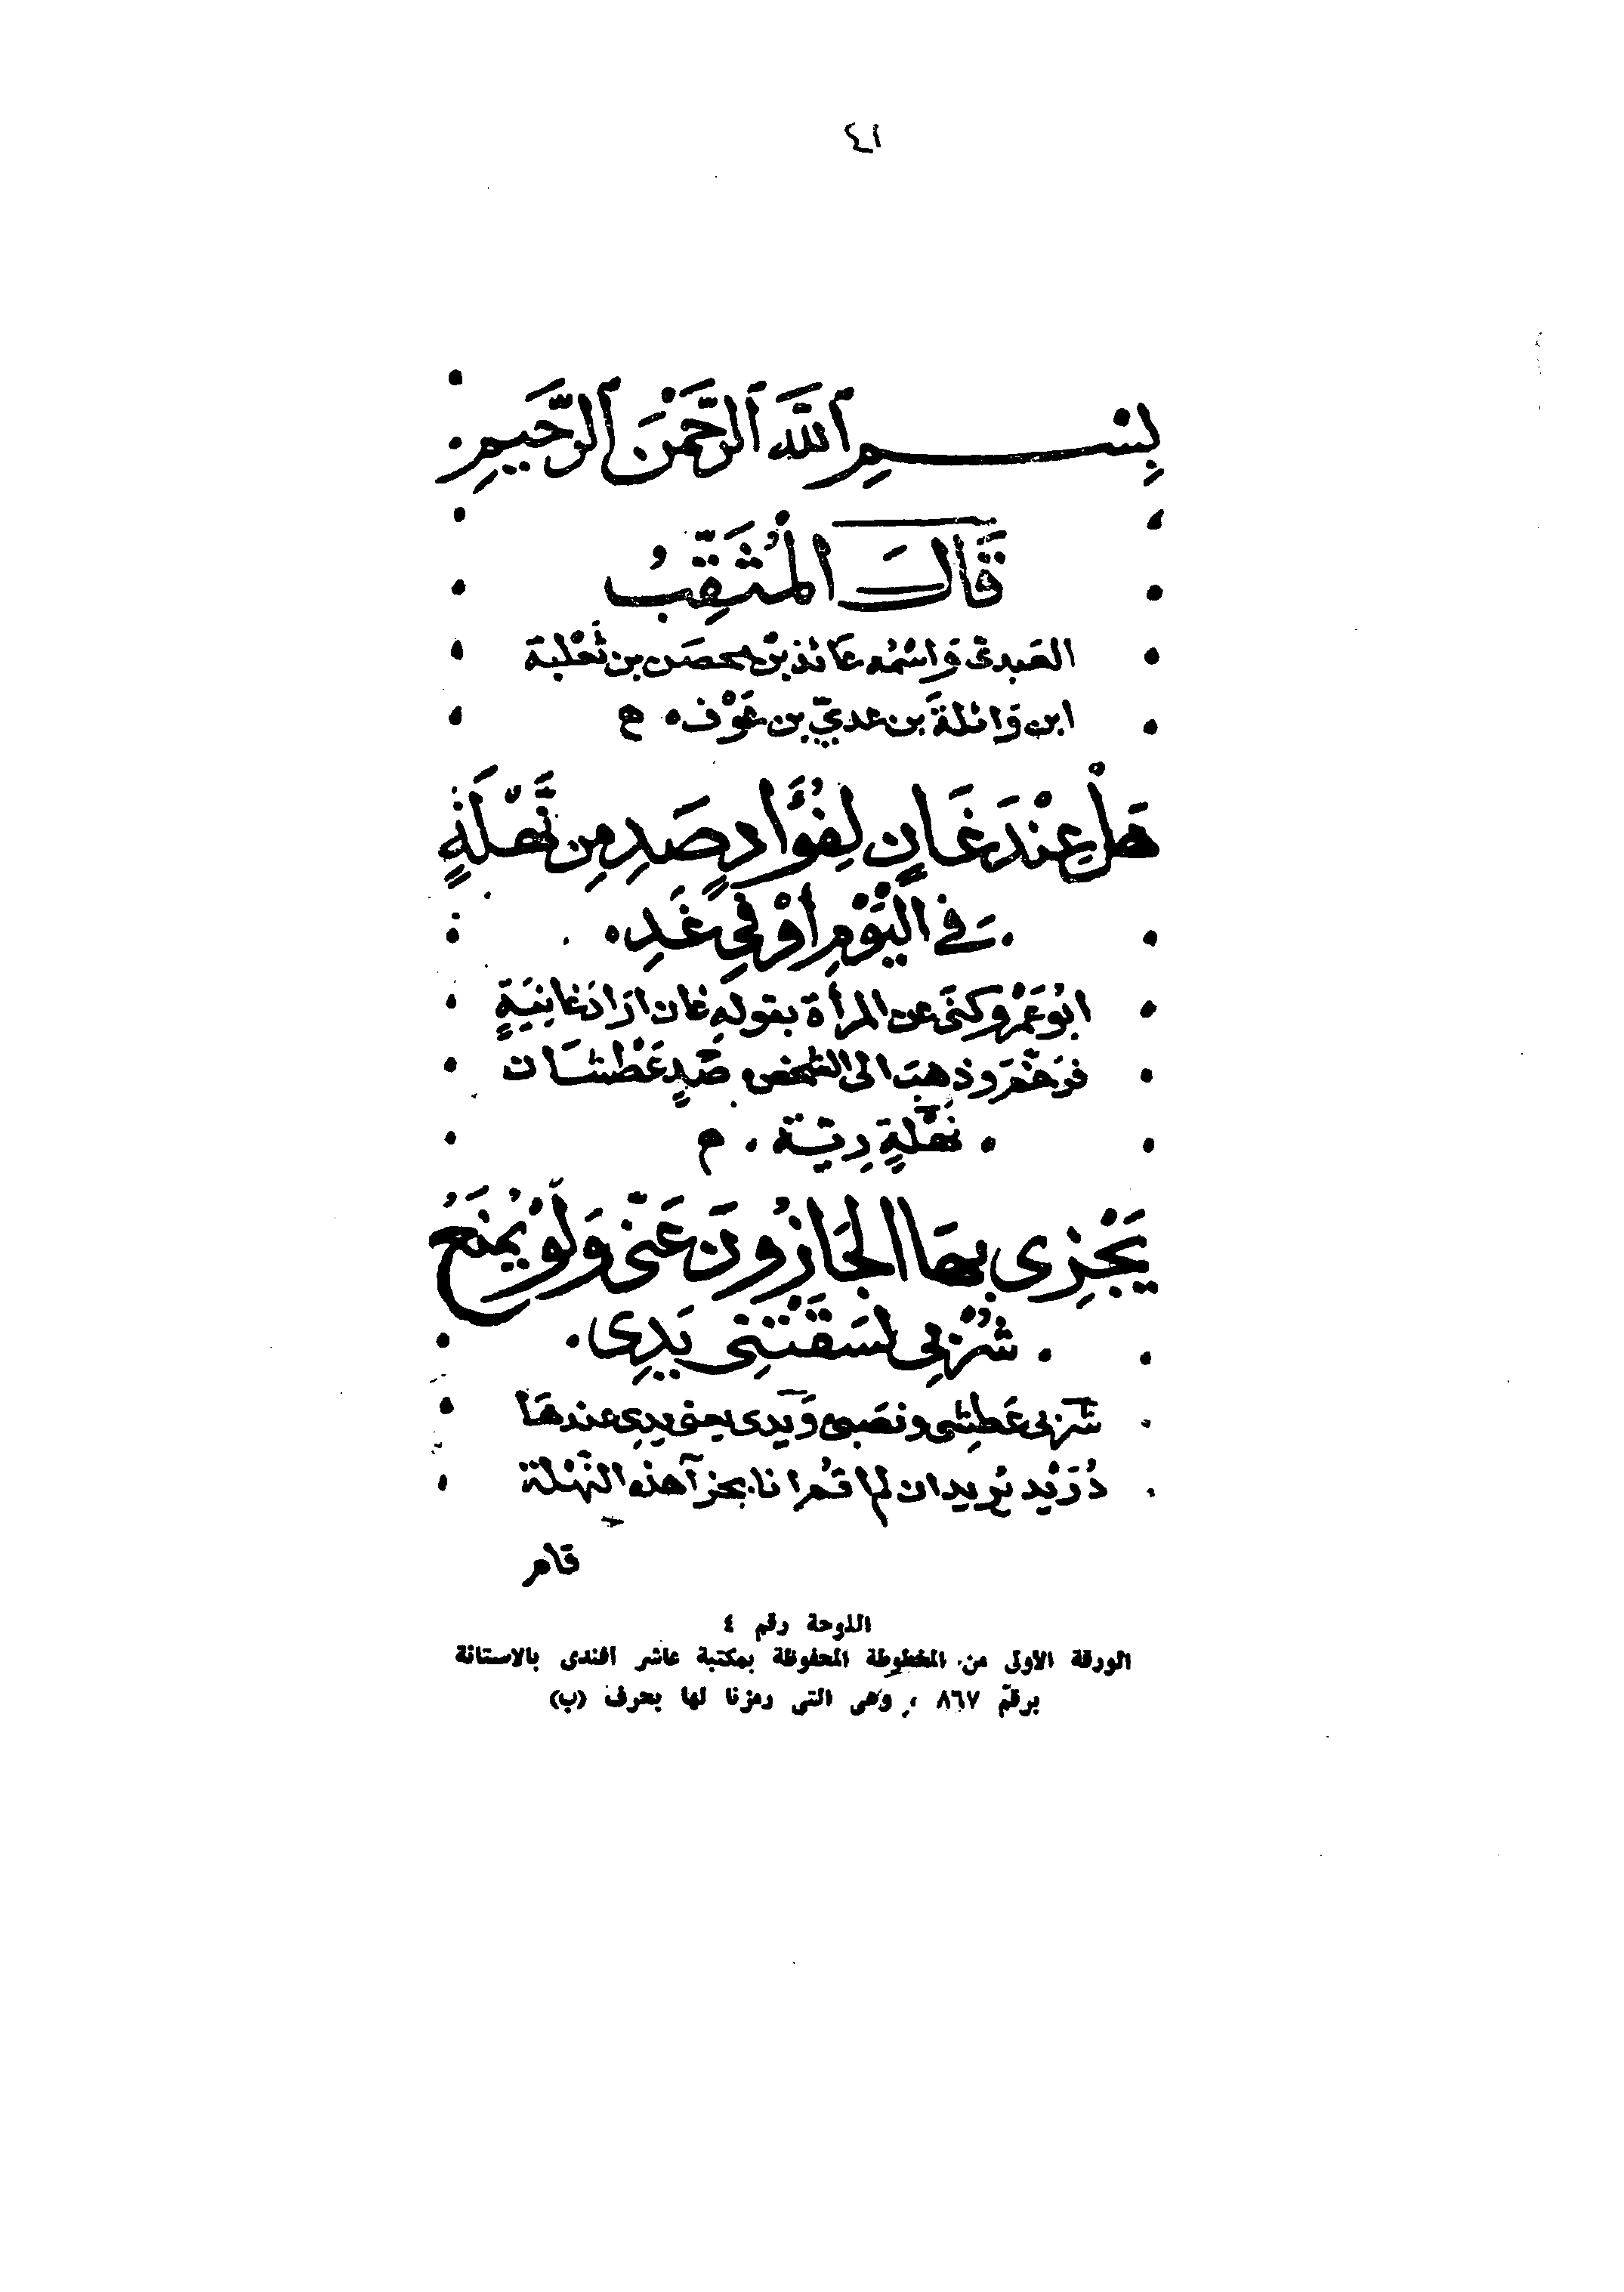 ٤١
بِسْمِ ٱللَّهِ ٱلرَّحْمٰنِ ٱلرَّحِيمِ
قَالَ الْمُثَقِّبُ
العبدي وَاسْمُه عَائذ بنْ محصَن بن ثَعْلبة
ابن وَائلةَ بن عديّ بن عَوْف ه ح
هَلْ عِنْدَ غَانٍ لِفُؤَادٍ صَدِ مِن نَّهْلَةٍ
فِي الْيَوْمِ أَوْ فِي غَدِ ه
ابُو عَمْرو كنَى عن المرأة بقولهِ غان ارَادَ غَانِيَةٍ
فرَخَّمَ وذهبَ الى الشخص صَدٍ عَطْشَان
نَهْلَةٍ رِيّة م
يَجْزِي بهَا الجَازُونَ عَنّي وَلَوْ يُمْنَعُ
شُرْبِي لسَقَتْنِي يَدِي
شربي عَطِشى ونصَبى وَيَدى يعنى يدِى عندهَا
دُرَيْد يُريد ان لم اقم انا بجزآ هذه النّهْلة
قام
اللوحة رقم ٤
الورقة الأولى من المخطوطة المحفوظة بمكتبة عاشر افندى بالاستانة
برقم ٨٦٧ ، وهى التى رمزنا لها بحرف (ب)